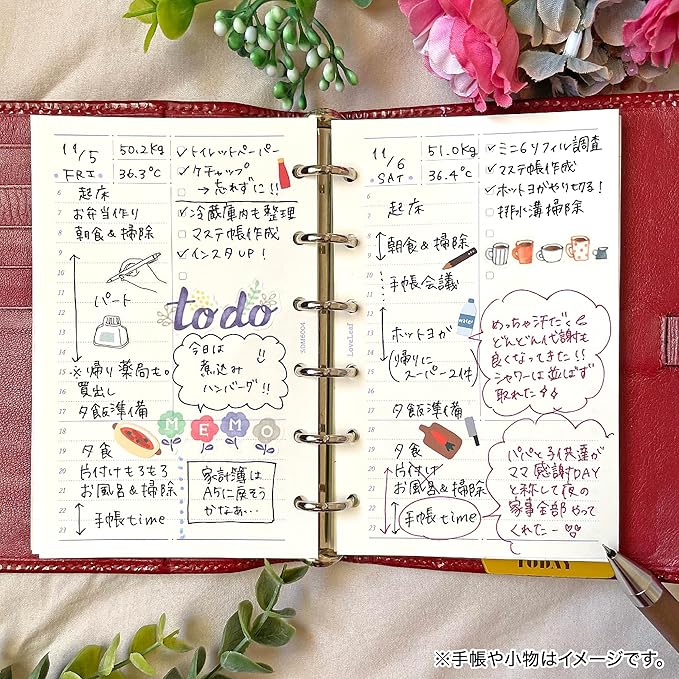 11/5
FRI
50.2kg
36.3℃
✓トイレットペーパー
✓ケチャップ
→忘れずに!!
✓冷蔵庫内も整理
□マステ帳作成
✓インスタUP!
6
7
8
9
10
11
12
13
14
15
16
17
18
19
20
21
22
23
起床
お弁当作り
朝食&掃除
パート
※帰り薬局も。
買出し
夕飯準備
夕食
片付けもろもろ
お風呂&掃除
手帳time
todo
今日は
煮込み
ハンバーグ!!
MEMO
家計簿は
A5に戻そう
かなぁ…
SDM6004
LoveLeaf
11/6
SAT
51.0kg
36.4℃
✓ミニ6リフィル調査
✓マステ帳作成
✓ホットヨガやり切る!
□排水溝掃除
6
7
8
9
10
11
12
13
14
15
16
17
18
19
20
21
22
23
起床
朝食&掃除
手帳会議
ホットヨガ
(帰りに
スーパー2件)
夕飯準備
夕食
片付け
お風呂&掃除
手帳time
water
めっちゃ汗だく
どんどん代謝も
良くなってきた!!
シャワーは並ばず
取れた
パパと子供達が
ママ感謝DAY
と称して夜の
家事全部やって
くれたー♡♡
TODAY
※手帳や小物はイメージです。